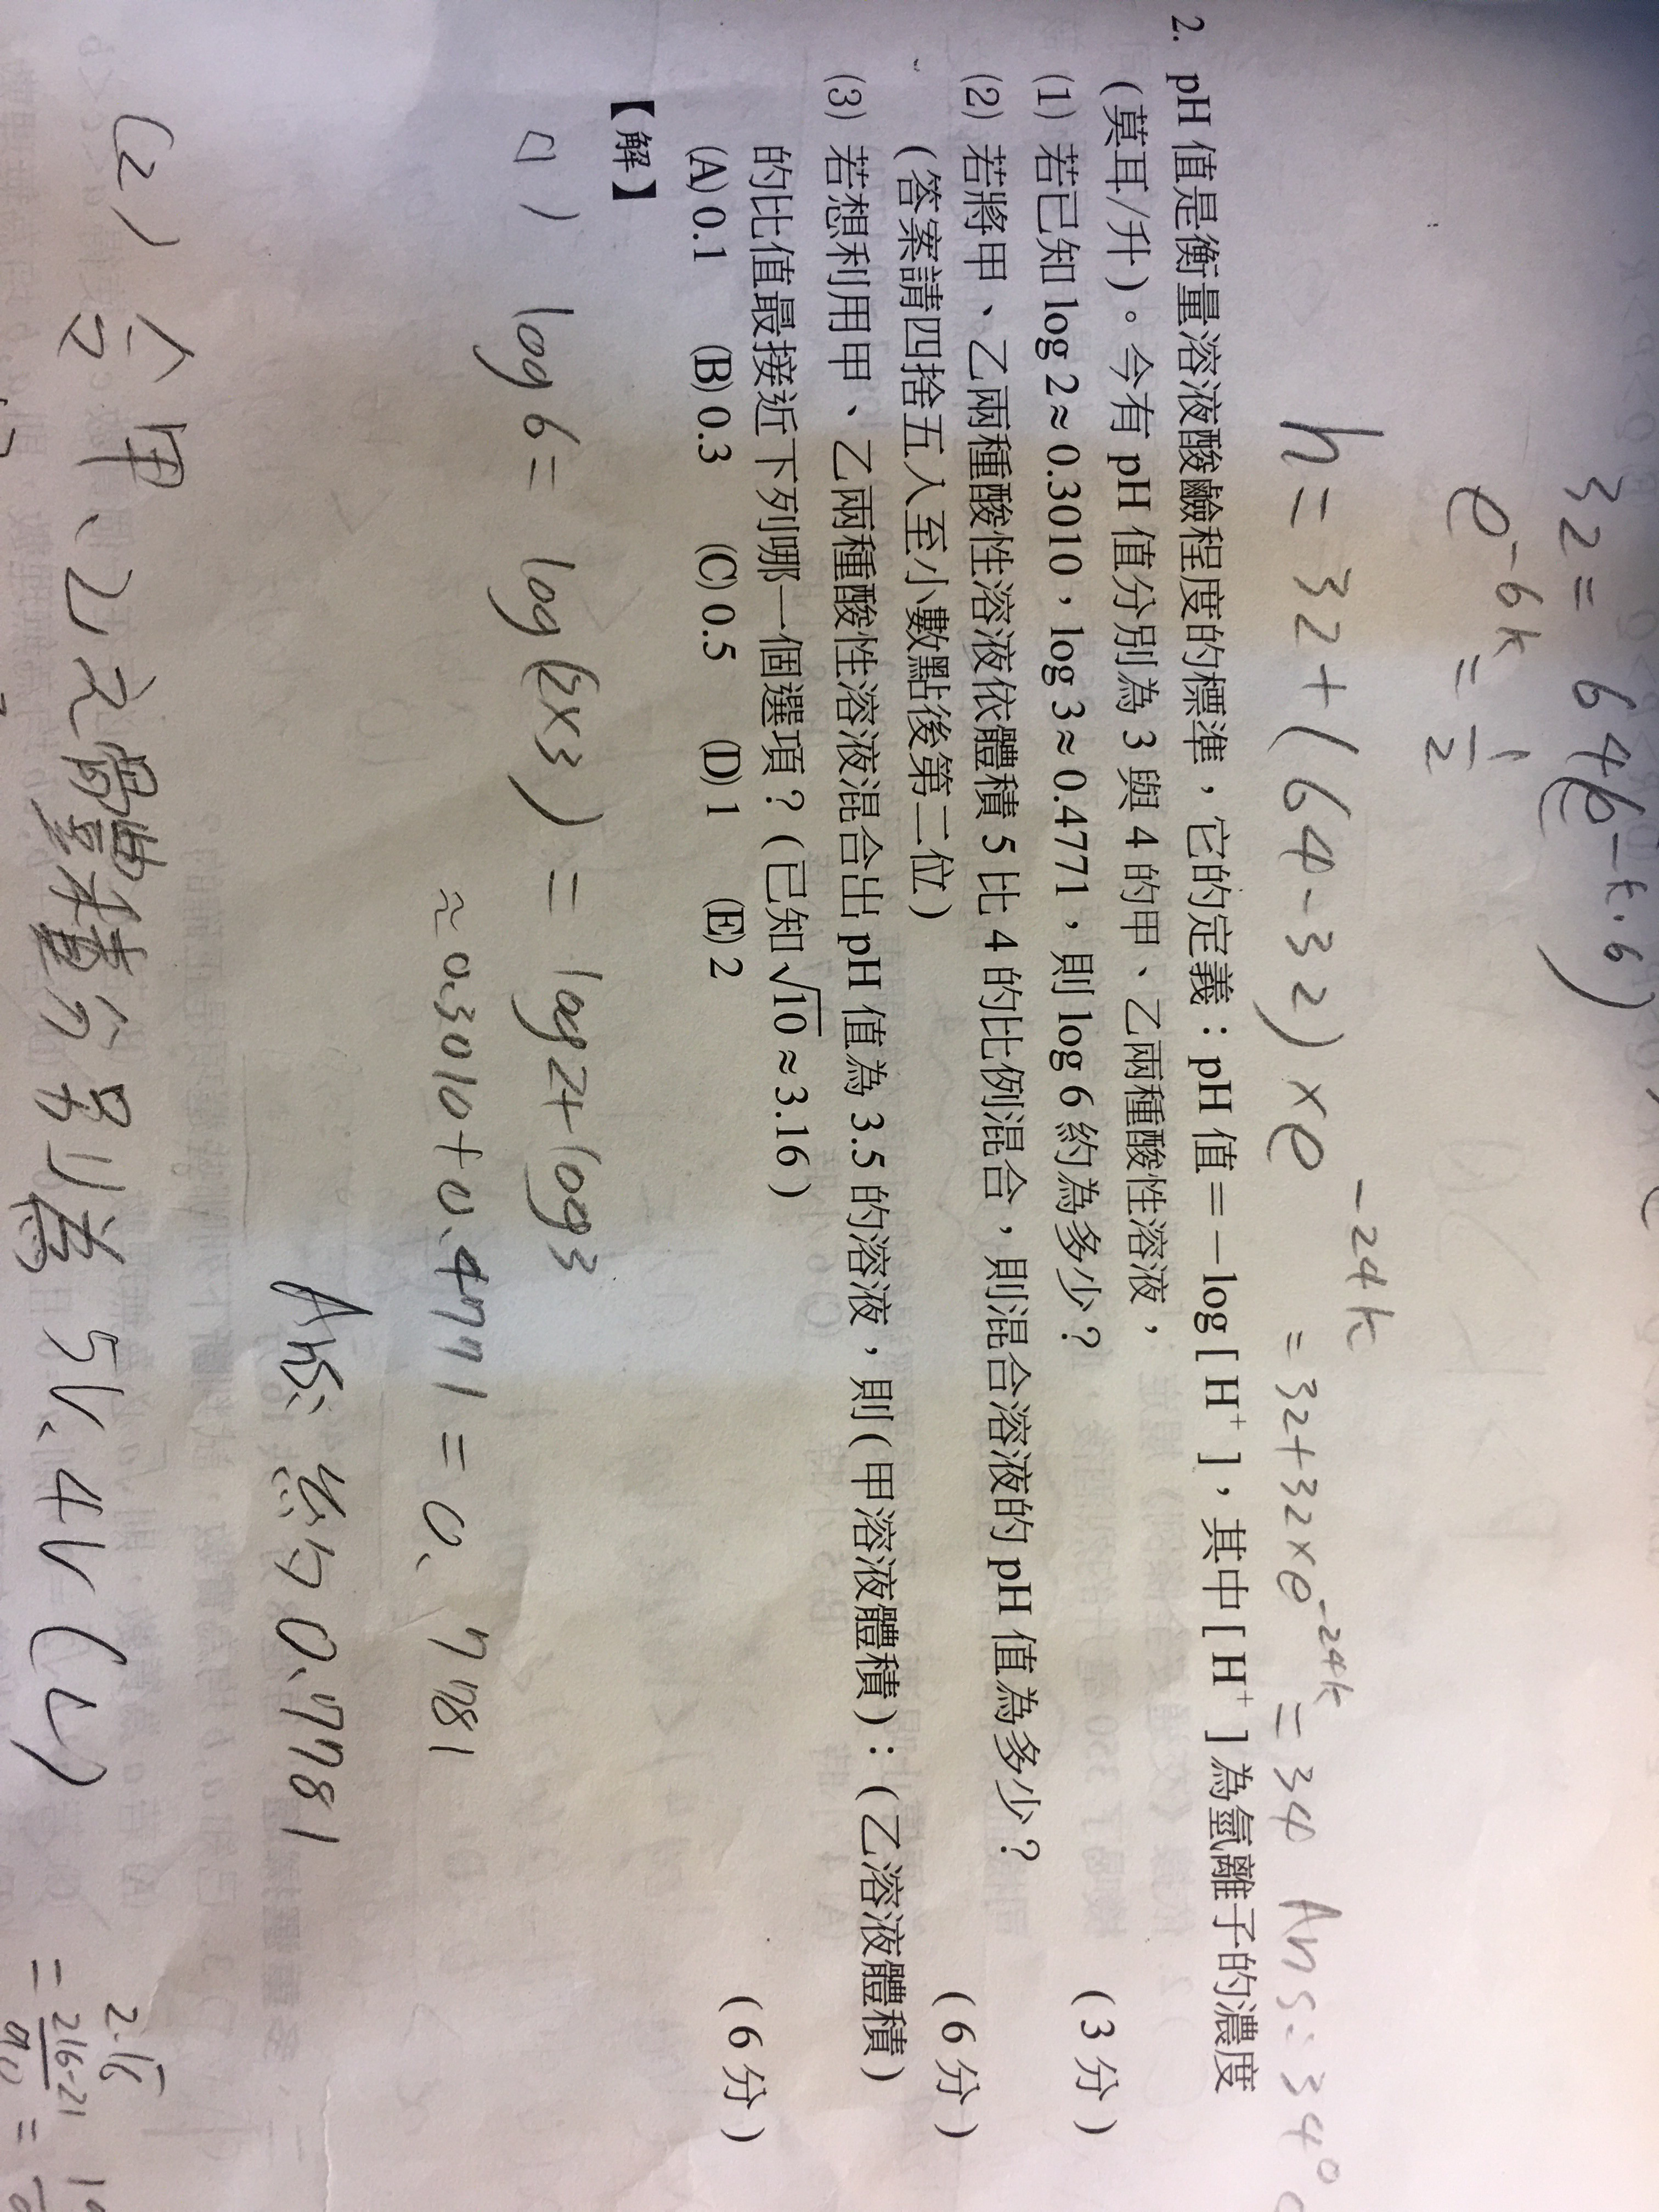 32 = 64(e^{-k·6})
e^{-6k} = 1/2
h = 32 + (64 - 32) × e^{-24k} = 32 + 32 × e^{-24k} = 34 Ans: 34°
2. pH 值是衡量溶液酸鹼程度的標準，它的定義：pH 值＝－log [ H⁺ ]，其中 [ H⁺ ] 為氫離子的濃度
(莫耳/升)。今有 pH 值分別為 3 與 4 的甲、乙兩種酸性溶液，
(1) 若已知 log 2 ≈ 0.3010，log 3 ≈ 0.4771，則 log 6 約為多少？ (3 分)
(2) 若將甲、乙兩種酸性溶液依體積 5 比 4 的比例混合，則混合溶液的 pH 值為多少？
(答案請四捨五入至小數點後第二位) (6 分)
(3) 若想利用甲、乙兩種酸性溶液混合出 pH 值為 3.5 的溶液，則 (甲溶液體積)：(乙溶液體積)
的比值最接近下列哪一個選項？(已知 √10 ≈ 3.16)
(A) 0.1 (B) 0.3 (C) 0.5 (D) 1 (E) 2 (6 分)
【解】
(1) log 6 = log (2×3) = log 2 + log 3
≈ 0.3010 + 0.4771 = 0.7781
Ans: 為約 0.7781
(2) 令甲、乙之體積分別為 5V、4V (L)
2.16
= 216-21